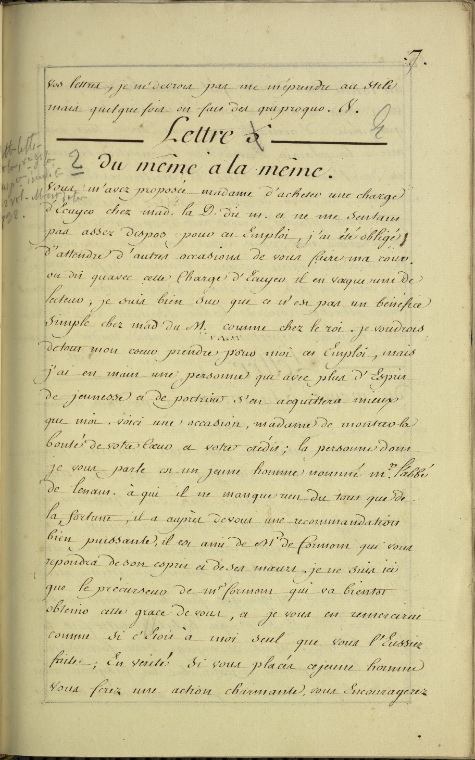 7.
vos lettres, je ne devrois pas me méprendre au stile
mais quelque fois on fait des quiproquo. V.
Lettre
2
du même a la même.
Vous m'avez proposée madame d'acheter une charge
d'Ecuyer chez mad. la D. du m. et ne me sentant
pas assez dispos pour cet Emploi, j'ai été obligé
d'attendre d'autres occasions de vous faire ma cour.
on dit qu'avec cette Charge d'Ecuyer il en vaque une de
lecteur, je suis bien sur que ce n'est pas un bénéfice
simple chez mad du M. comme chez le roi. je voudrois
de tout mon coeur prendre pour moi cet Emploi, mais
j'ai en main une personne qui avec plus d'Esprit
de jeunesse et de poitrine s'en acquittera mieux
que moi. voici une occasion, madame de montrer la
bonté de votre Coeur et votre crédit; la personne dont
je vous parle est un jeune homme nommé mr. l'abbé
de Linant. à qui il ne manque rien du tout que de
la fortune, il a auprès de vous une recommandation
bien puissante, il est ami de Mr de formont qui vous
repondra de son esprit et de ses moeurs. je ne suis ici
que le précurseur de mr formont qui va bientot
obtenir cette grace de vous, et je vous en remercierai
comme si c'étoit à moi seul que vous l'Eussiez
faite; En vérité si vous placés ce jeune homme
vous ferez une action charmante, vous Encouragerez